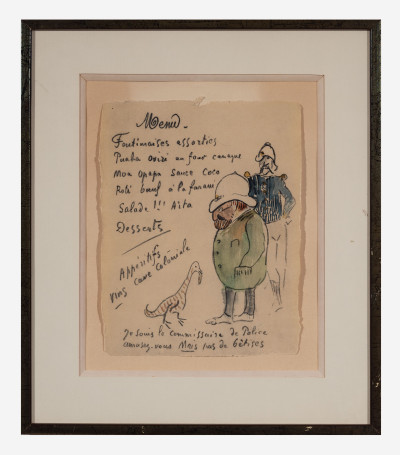 Menu -
Foutimaises assorties
Puaka oviri au four canaque
Moa opapa Sauce Coco
Roti bœuf à la farani
Salade !!! Aita
Desserts
Appéritifs
vins cave Coloniale
Je suis le commissaire de Police
amusez-vous Mais pas de bêtises